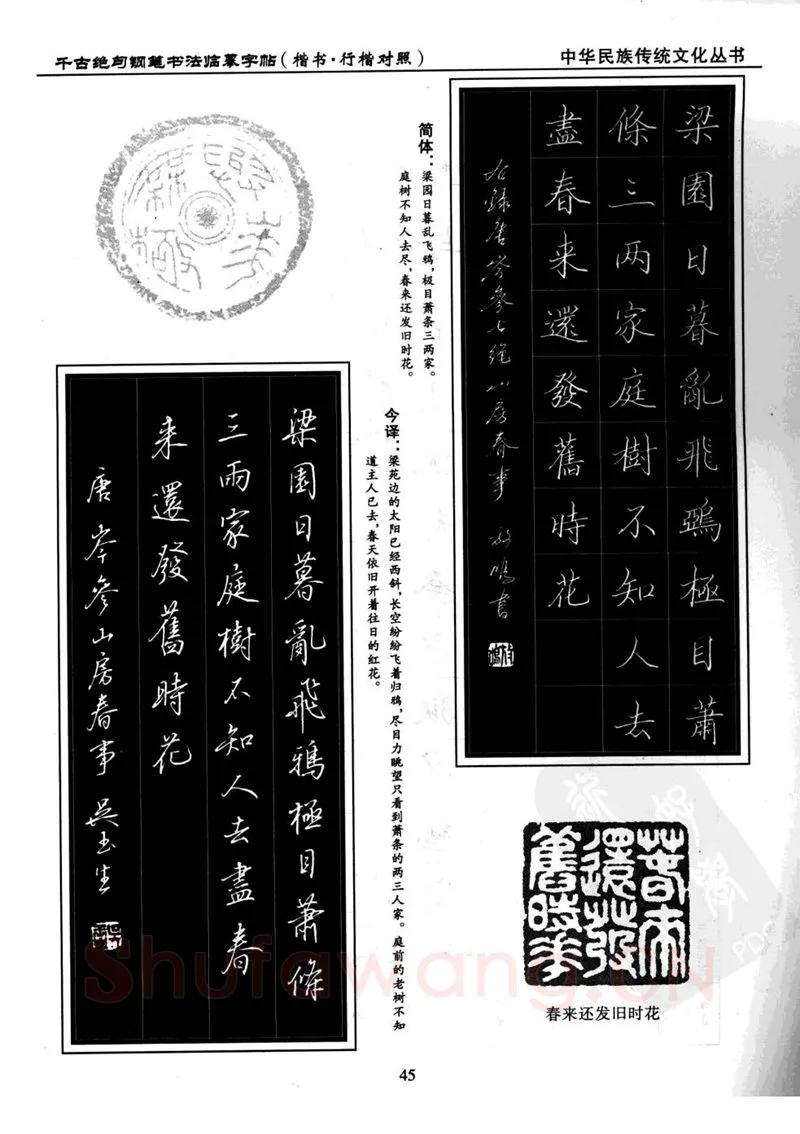 千古绝句钢笔书法临摹字帖(楷书·行楷对照)
中华民族传统文化丛书
梁園日暮亂飛鴉極目蕭
條三两家庭樹不知人去
盡春来還發舊時花
右録唐岑參七绝山房春事 敖鳴書
简体：梁园日暮乱飞鸦，极目萧条三两家。
庭树不知人去尽，春来还发旧时花。
今译：梁苑边的太阳已经西斜，长空纷纷飞着归鸦，尽目力眺望只看到萧条的两三人家。庭前的老树不知
道主人已去，春天依旧开着往日的红花。
梁園日暮亂飛鴉極目蕭條
三兩家庭樹不知人去盡春
来還發舊時花
唐岑參山房春事 吴玉生
春来還發舊時花
春来还发旧时花
Shufawang.CN
45